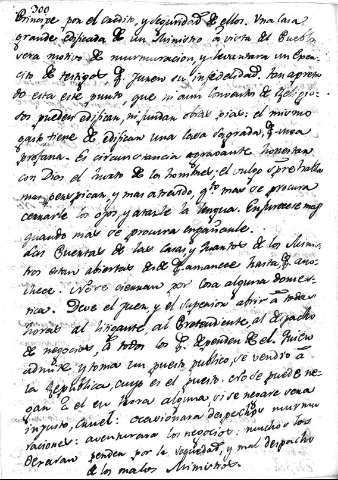 300
Principe por el credito, y seguridad de ellos. Una casa
grande edificada de un Ministro à vista del Pueblo
sera motivo de murmuracion, y levantara un Exer-
cito de testigos q̃ juren su infidelidad. Tan apreta-
do esta este punto, que ni aun Conventos de Religio-
sos pueden edificar, ni fundar obras pias: el mismo
gasto tiene de edificar una Casa sagrada, q̃ una
profana. Es circunstancia agravante
con Dios el hurto de los hombres: el vulgo siempre halla
mas perspicaz, y mas atrevido, q.do mas se procura
cerrarle los ojos, y atarle la lengua. Enfurecese mas
quando mas se procura engañarle.
Las Puertas de las Casas, y Quartos de los Minis-
tros estan abiertas desde q̃ amanece hasta q̃ ano-
chece. No se cierran por cosa alguna domes-
tica. Deve el Juez, y el superior abrir à todas
horas al litigante, al Pretendiente, al despacho
de negocios, à todos los q̃ dependen de el. Quien
admite, y toma un puesto publico, se vendio à
la Republica, cuyo es el puesto: esto se puede ne-
gar à el en hora alguna, y si se negare sera
injusto, cruel: ocasionara despechos, murmu-
raciones: aventurara los negocios: muchos los
penden por la, y mal despacho
de los malos Ministros.